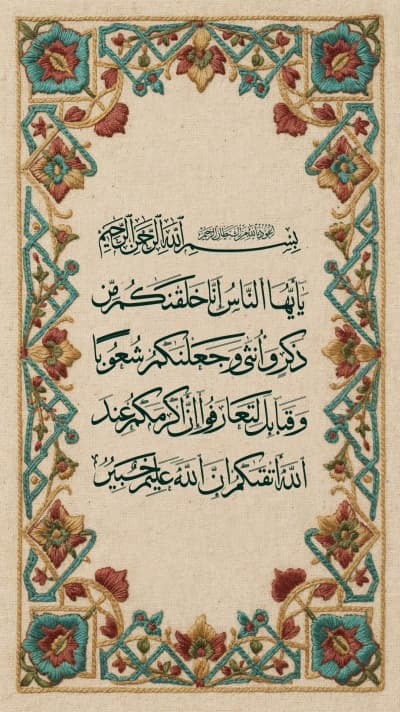 أعوذ بالله من الشيطان الرجيم
بسم الله الرحمن الرحيم
يا أيها الناس إنا خلقنكم من
ذكر وأنثى وجعلنكم شعوبا
وقبايل لتعارفوا إن أكرمكم عند
الله أتقىكم إن الله عليم خبير